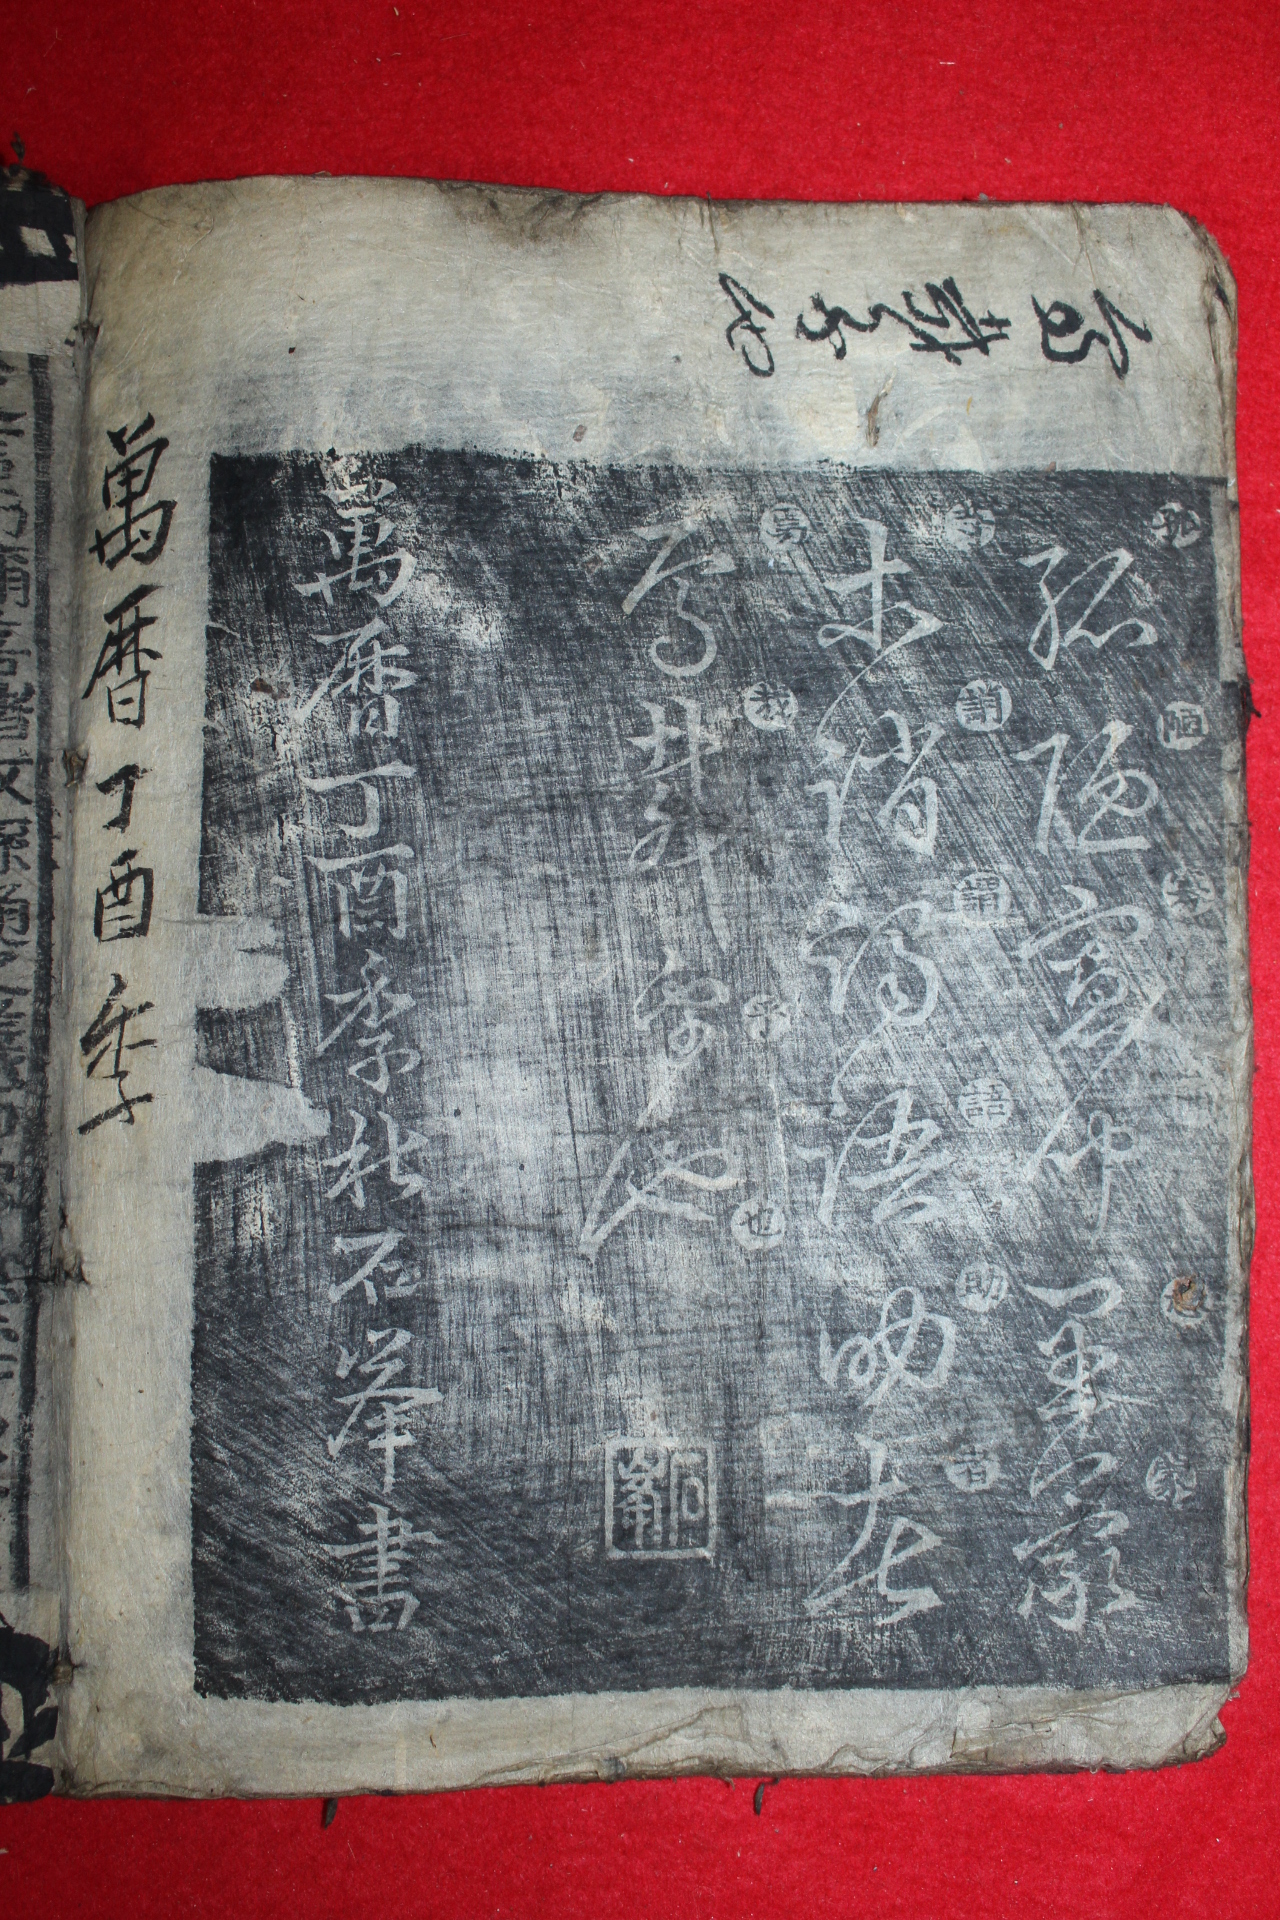 焉哉乎也
孤陋寡聞愚蒙
孤陋寡聞愚蒙
等誚謂語助者
等誚謂語助者
焉哉乎也
焉哉乎也
石峯
萬曆丁酉季秋石峯書
萬曆丁酉季